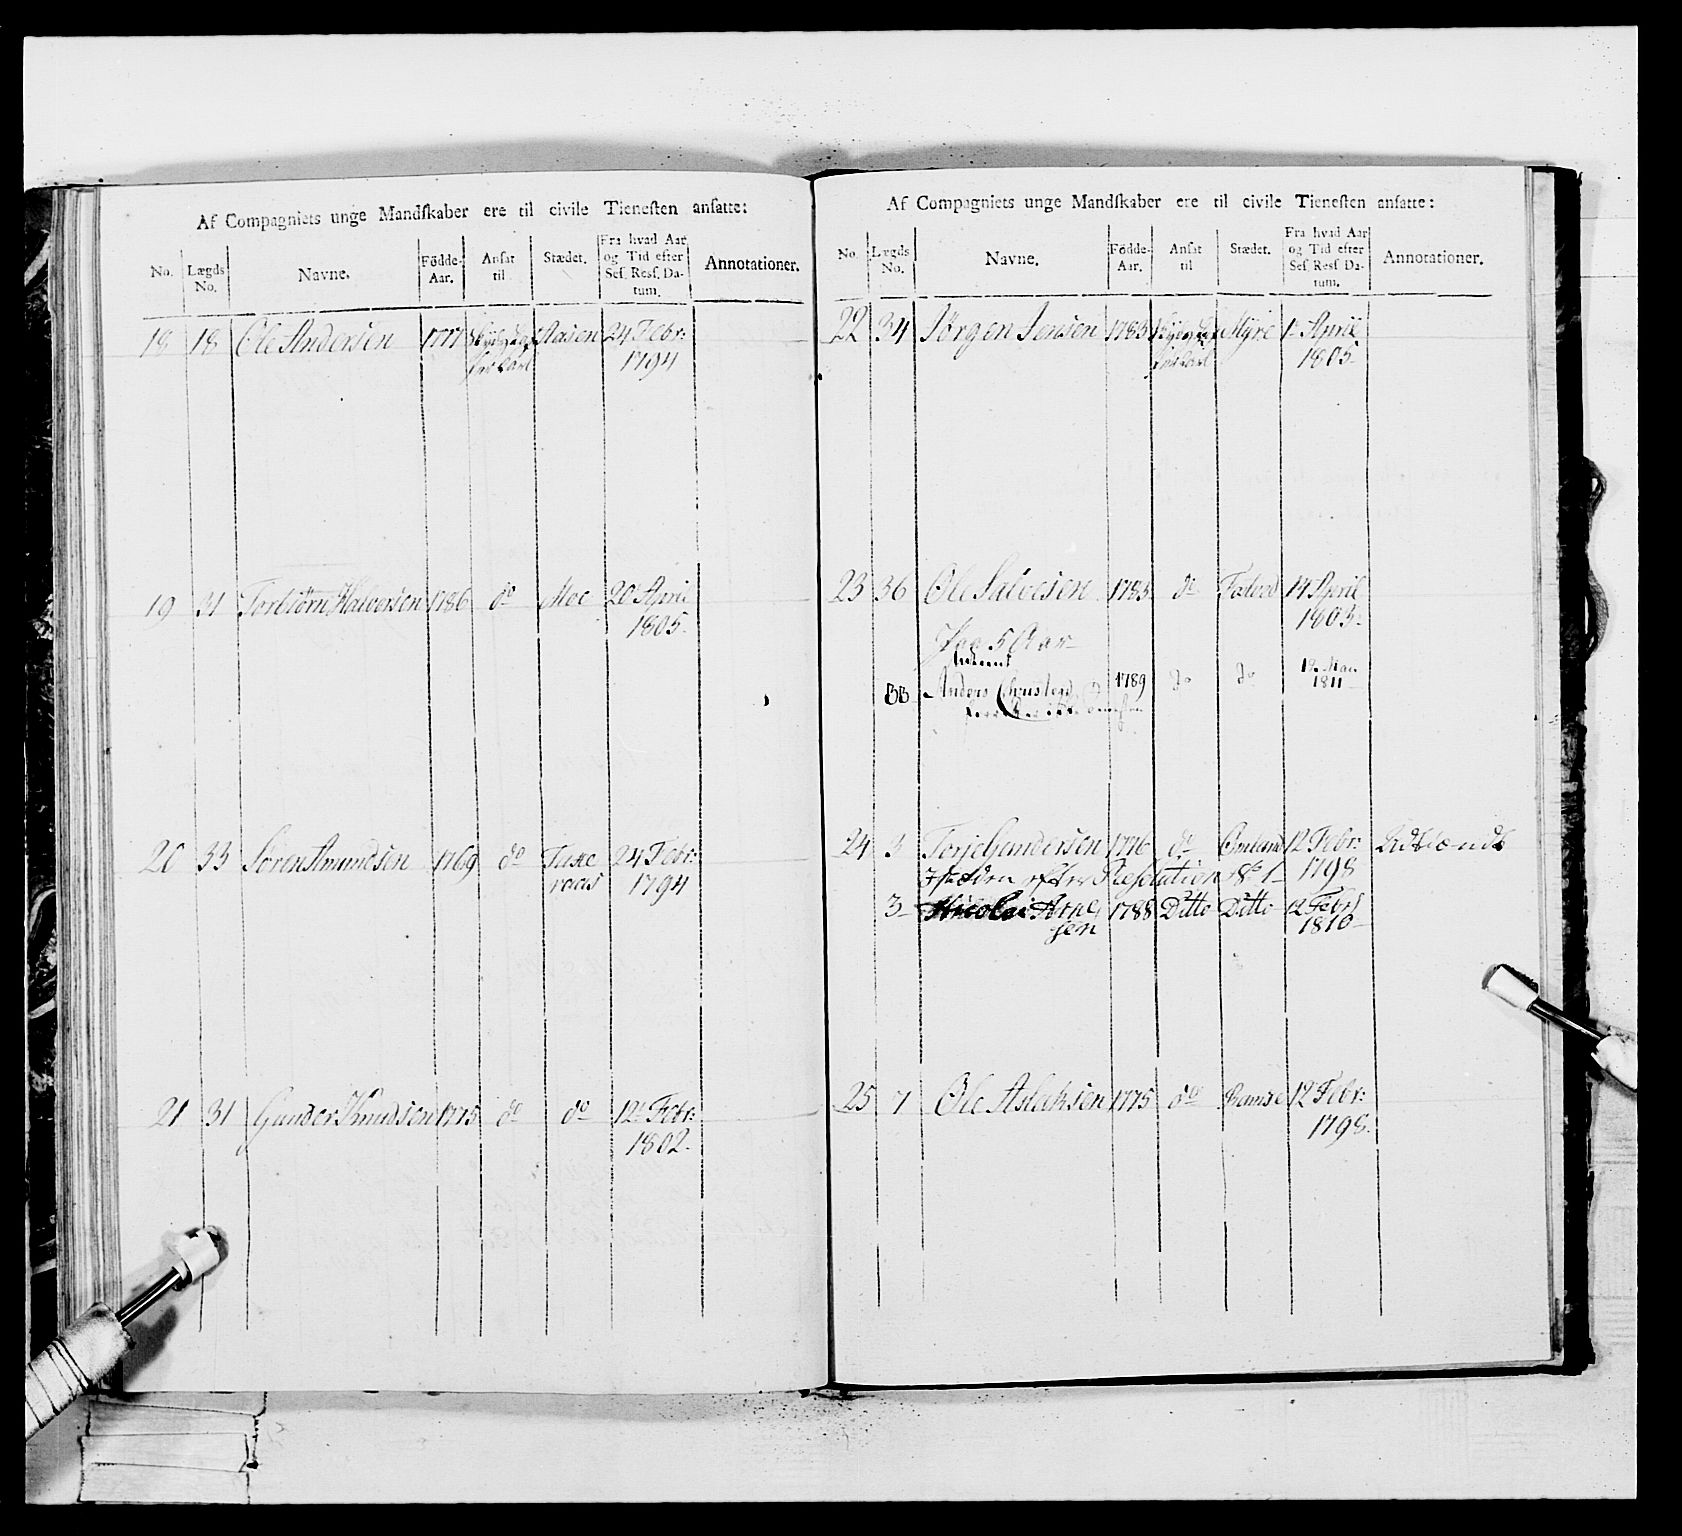 Af Compagniets unge Mandſkaber ere til civile Tieneſten anſatte:
No. Lægds No. Navne. Födde-Aar. Anſat til Stædet. Fra hvad Aar og Tid efter Seſ. Reſſ. Datum. Annotationer.
18 18 Ole Andersen 1777 Aasen 24 Febr:
1794
19 31 Torbiörn Halvorsen 1786 do Moe 20 April
1805.
20 33 Sören Amundsen 1769 do 24 Febr:
1794
21 31 Gunder Knudsen 1775 do do 12 Febr:
1802.
Af Compagniets unge Mandſkaber ere til civile Tieneſten anſatte:
No. Lægds No. Navne. Födde-Aar. Anſat til Stædet. Fra hvad Aar og Tid efter Seſ. Reſſ. Datum. Annotationer.
22 34 Jörgen Jensen 1783 Myre 1 April
1803.
23 36 Ole Salvesen 1783 do 14 April
1803.
5 Aar
BB Anders Christens 1789 do do
1811
24 3 Terje Gundersen 1776 do 12 Febr:
efter Resolution 1798
3 Nicolai Arne 1788 Ditto Ditto 12 Febr
sen 1810
25 7 Ole Aslaksen 1775 do 12 Febr:
1798.